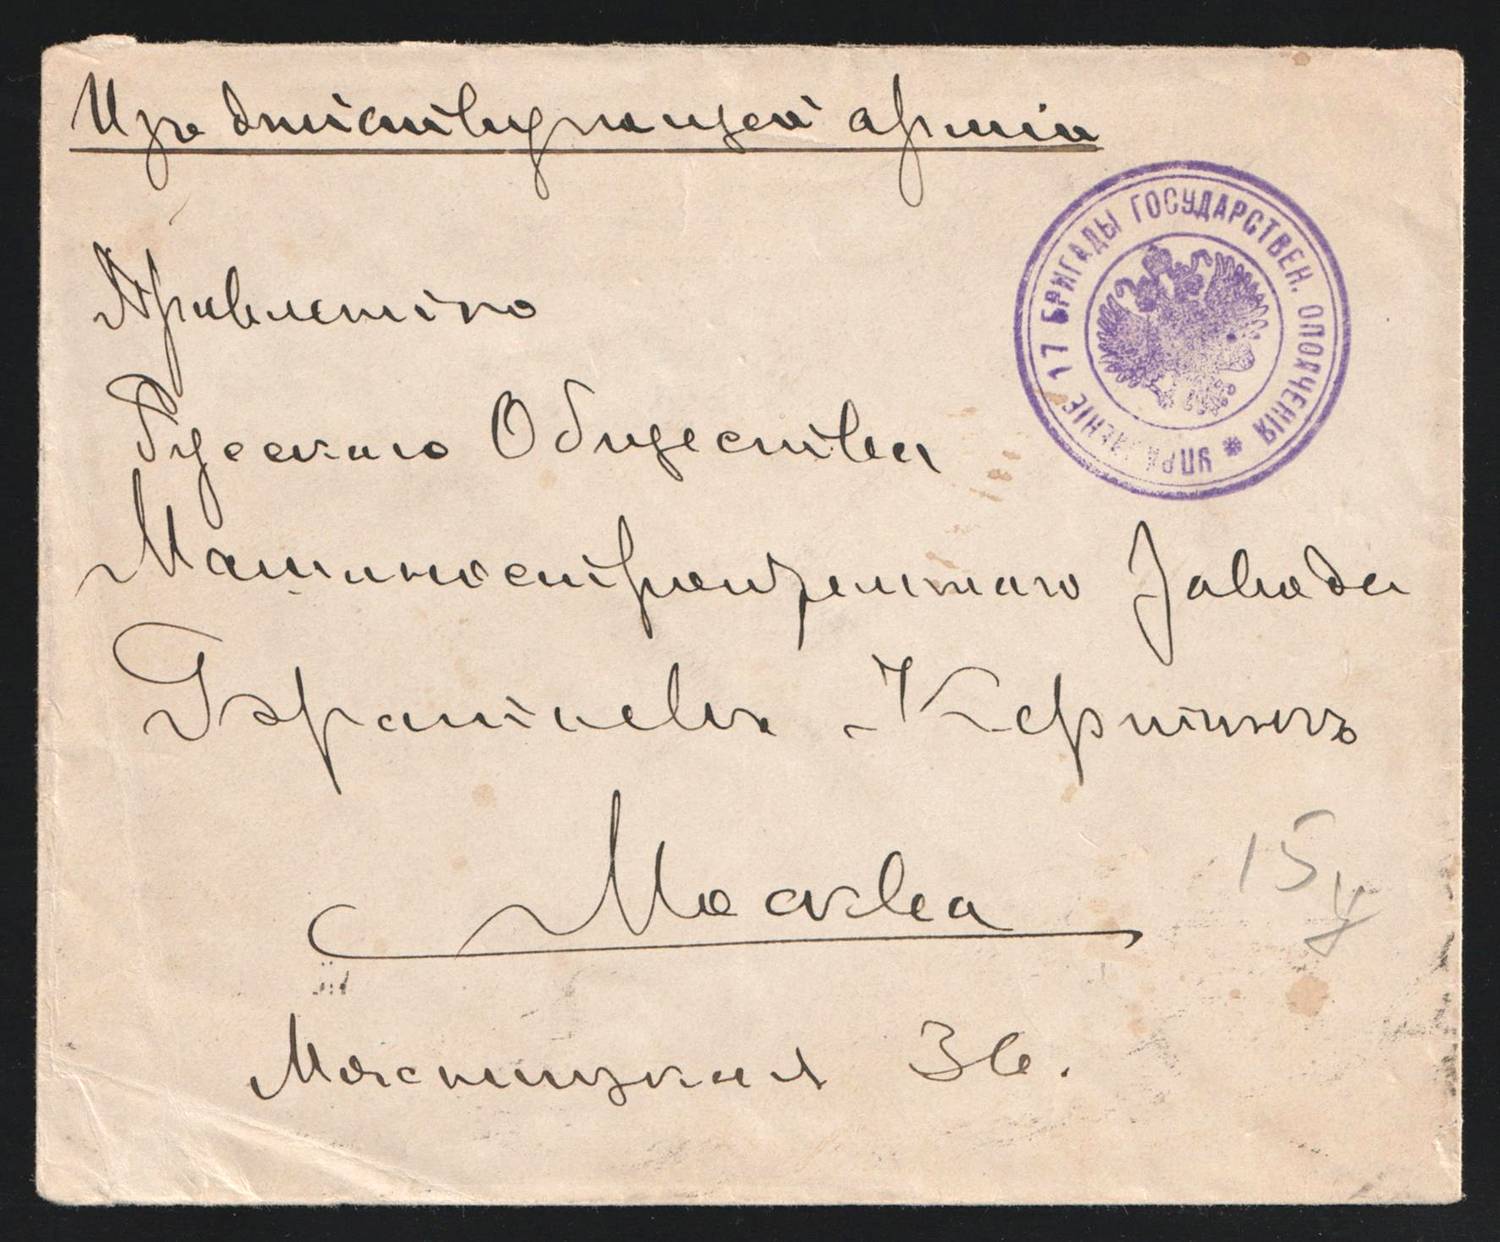 Изъ дѣйствующей арміи
УПРАВЛЕНІЕ 17 БРИГАДЫ ГОСУДАРСТВЕН. ОПОЛЧЕНІЯ
Правленію
Русскаго Общества
Машиностроительнаго Завода
Братьевъ Кертингъ
Москва
15
Мясницкая 36.